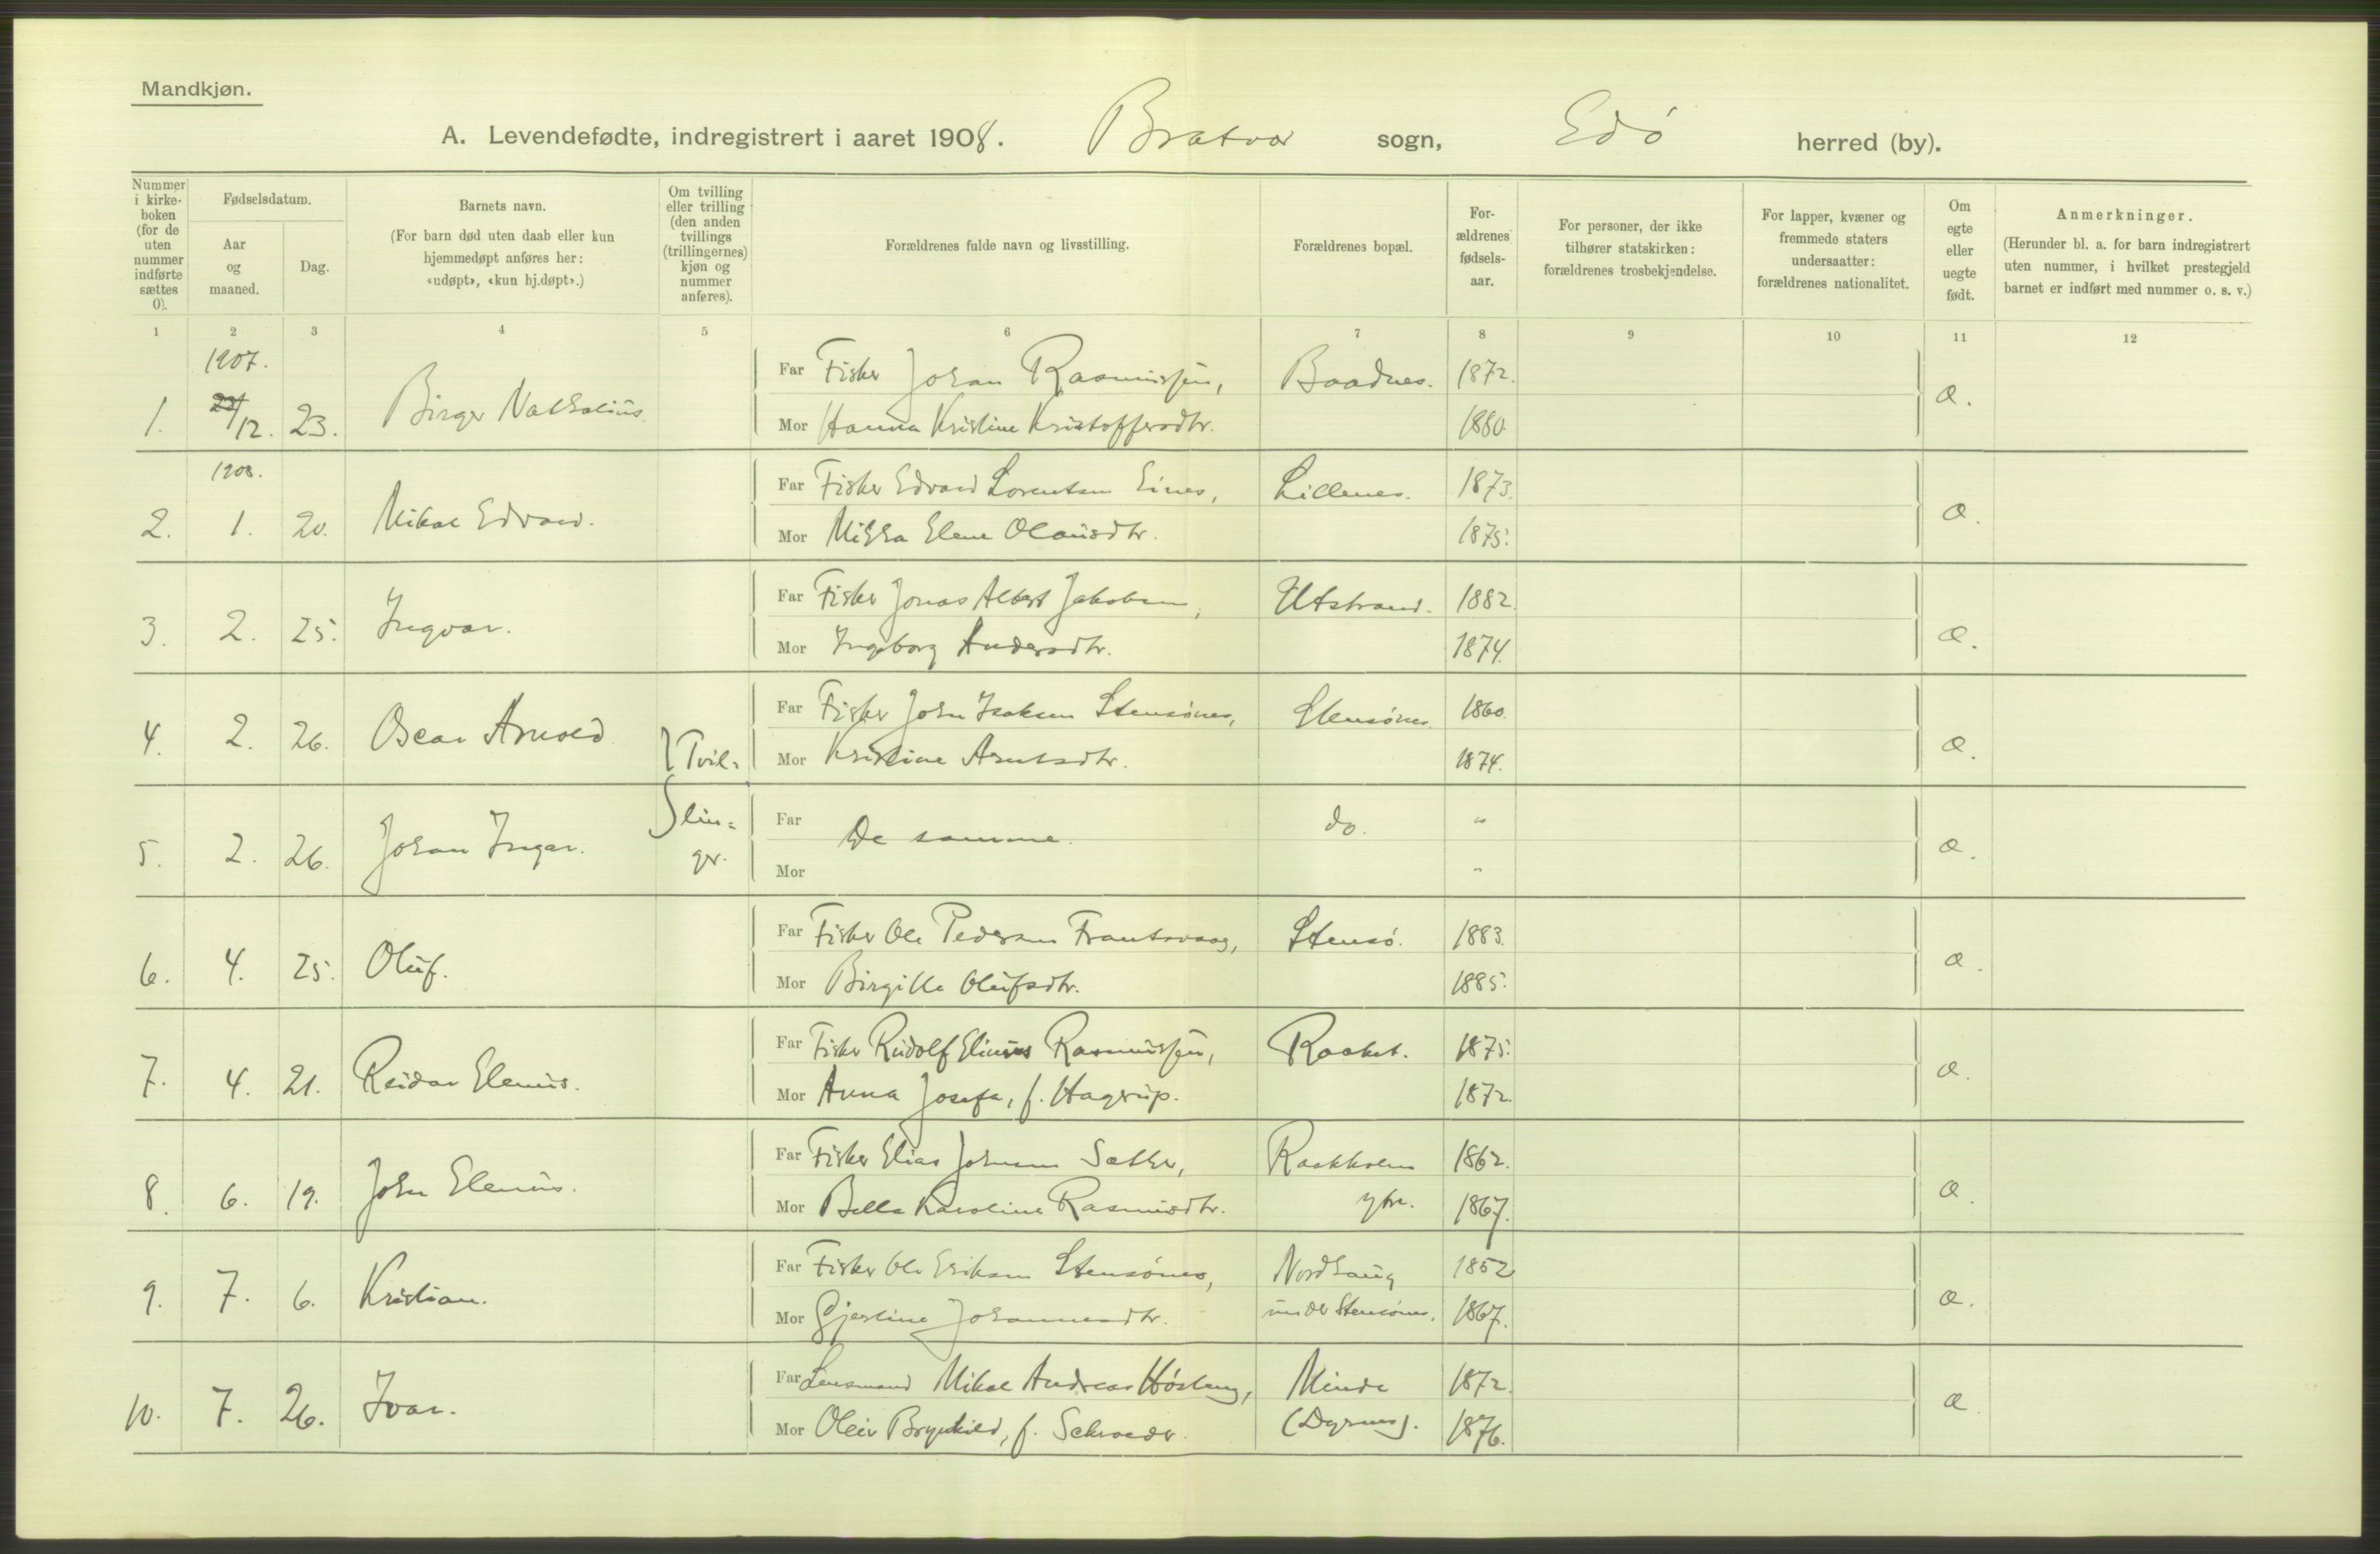 Mandkjøn.
A. Levendefødte, indregistrert i aaret 1908. Bratvær sogn, Edö herred (by).
Nummer i kirkeboken (for de uten nummer indførte sættes 0).
Fødselsdatum.
Aar og maaned.
Dag.
Barnets navn.
(For barn død uten daab eller kun hjemmedøpt anføres her: «udøpt», «kun hj.døpt».)
Om tvilling eller trilling (den anden tvillings (trillingernes) kjøn og nummer anføres).
Forældrenes fulde navn og livsstilling.
Forældrenes bopæl.
Forældrenes fødselsaar.
For personer, der ikke tilhører statskirken: forældrenes trosbekjendelse.
For lapper, kvæner og fremmede staters undersaatter: forældrenes nationalitet.
Om egte eller uegte født.
Anmerkninger.
(Herunder bl. a. for barn indregistrert uten nummer, i hvilket prestegjeld barnet er indført med nummer o. s. v.)
1 2 3 4 5 6 7 8 9 10 11 12
1907.
1. 12. 23. Birger Nathalius
Far Fisker Johan Rasmussen, Baadnes. 1872.
Mor Hanna Kristine Kristoffersdtr. 1880
æ.
1908.
2. 1. 20. Mikal Edvard.
Far Fisker Edvard Lorentsen Eines, Lillenes. 1873.
Mor Elene Olausdtr. 1875.
æ.
3. 2. 25. Ingvar.
Far Fisker Jonas Albert Jakobsen, Utstrand. 1882.
Mor Ingeborg Andersdtr. 1874.
æ.
4. 2. 26. Oscar Arnold } Tvil-
Far Fisker John Isaksen Stensönes, Stensönes. 1860.
Mor Kristine Arntsdtr. 1874.
æ.
5. 2. 26. Johan Ingar. lin-
ger.
Far De samme. do. "
Mor "
æ.
6. 4. 25. Oluf.
Far Fisker Ole Pedersen Frantsvaag, Stensö. 1883.
Mor Birgitte Olufsdtr. 1885.
æ.
7. 4. 21. Reidar Elenus.
Far Fisker Rudolf Elinus Rasmussen, Raaket. 1875.
Mor Anna Josefa, f. Hagrup. 1872.
æ.
8. 6. 19. John Elenus.
Far Fisker Elias Johnsen Sæther, Raakholm 1862.
Mor Karoline Rasmusdtr. ytre. 1867.
æ.
9. 7. 6. Kristian.
Far Fisker Ole Eriksen Stensönes, Nordhaug 1852
Mor Gjertine Johannesdtr. under Stensönes. 1867.
æ.
10. 7. 26. Ivar.
Far Lensmand Mikal Andreas Minde 1872.
Mor Brynhild, f. Schroeder. (Dyrnes). 1876.
æ